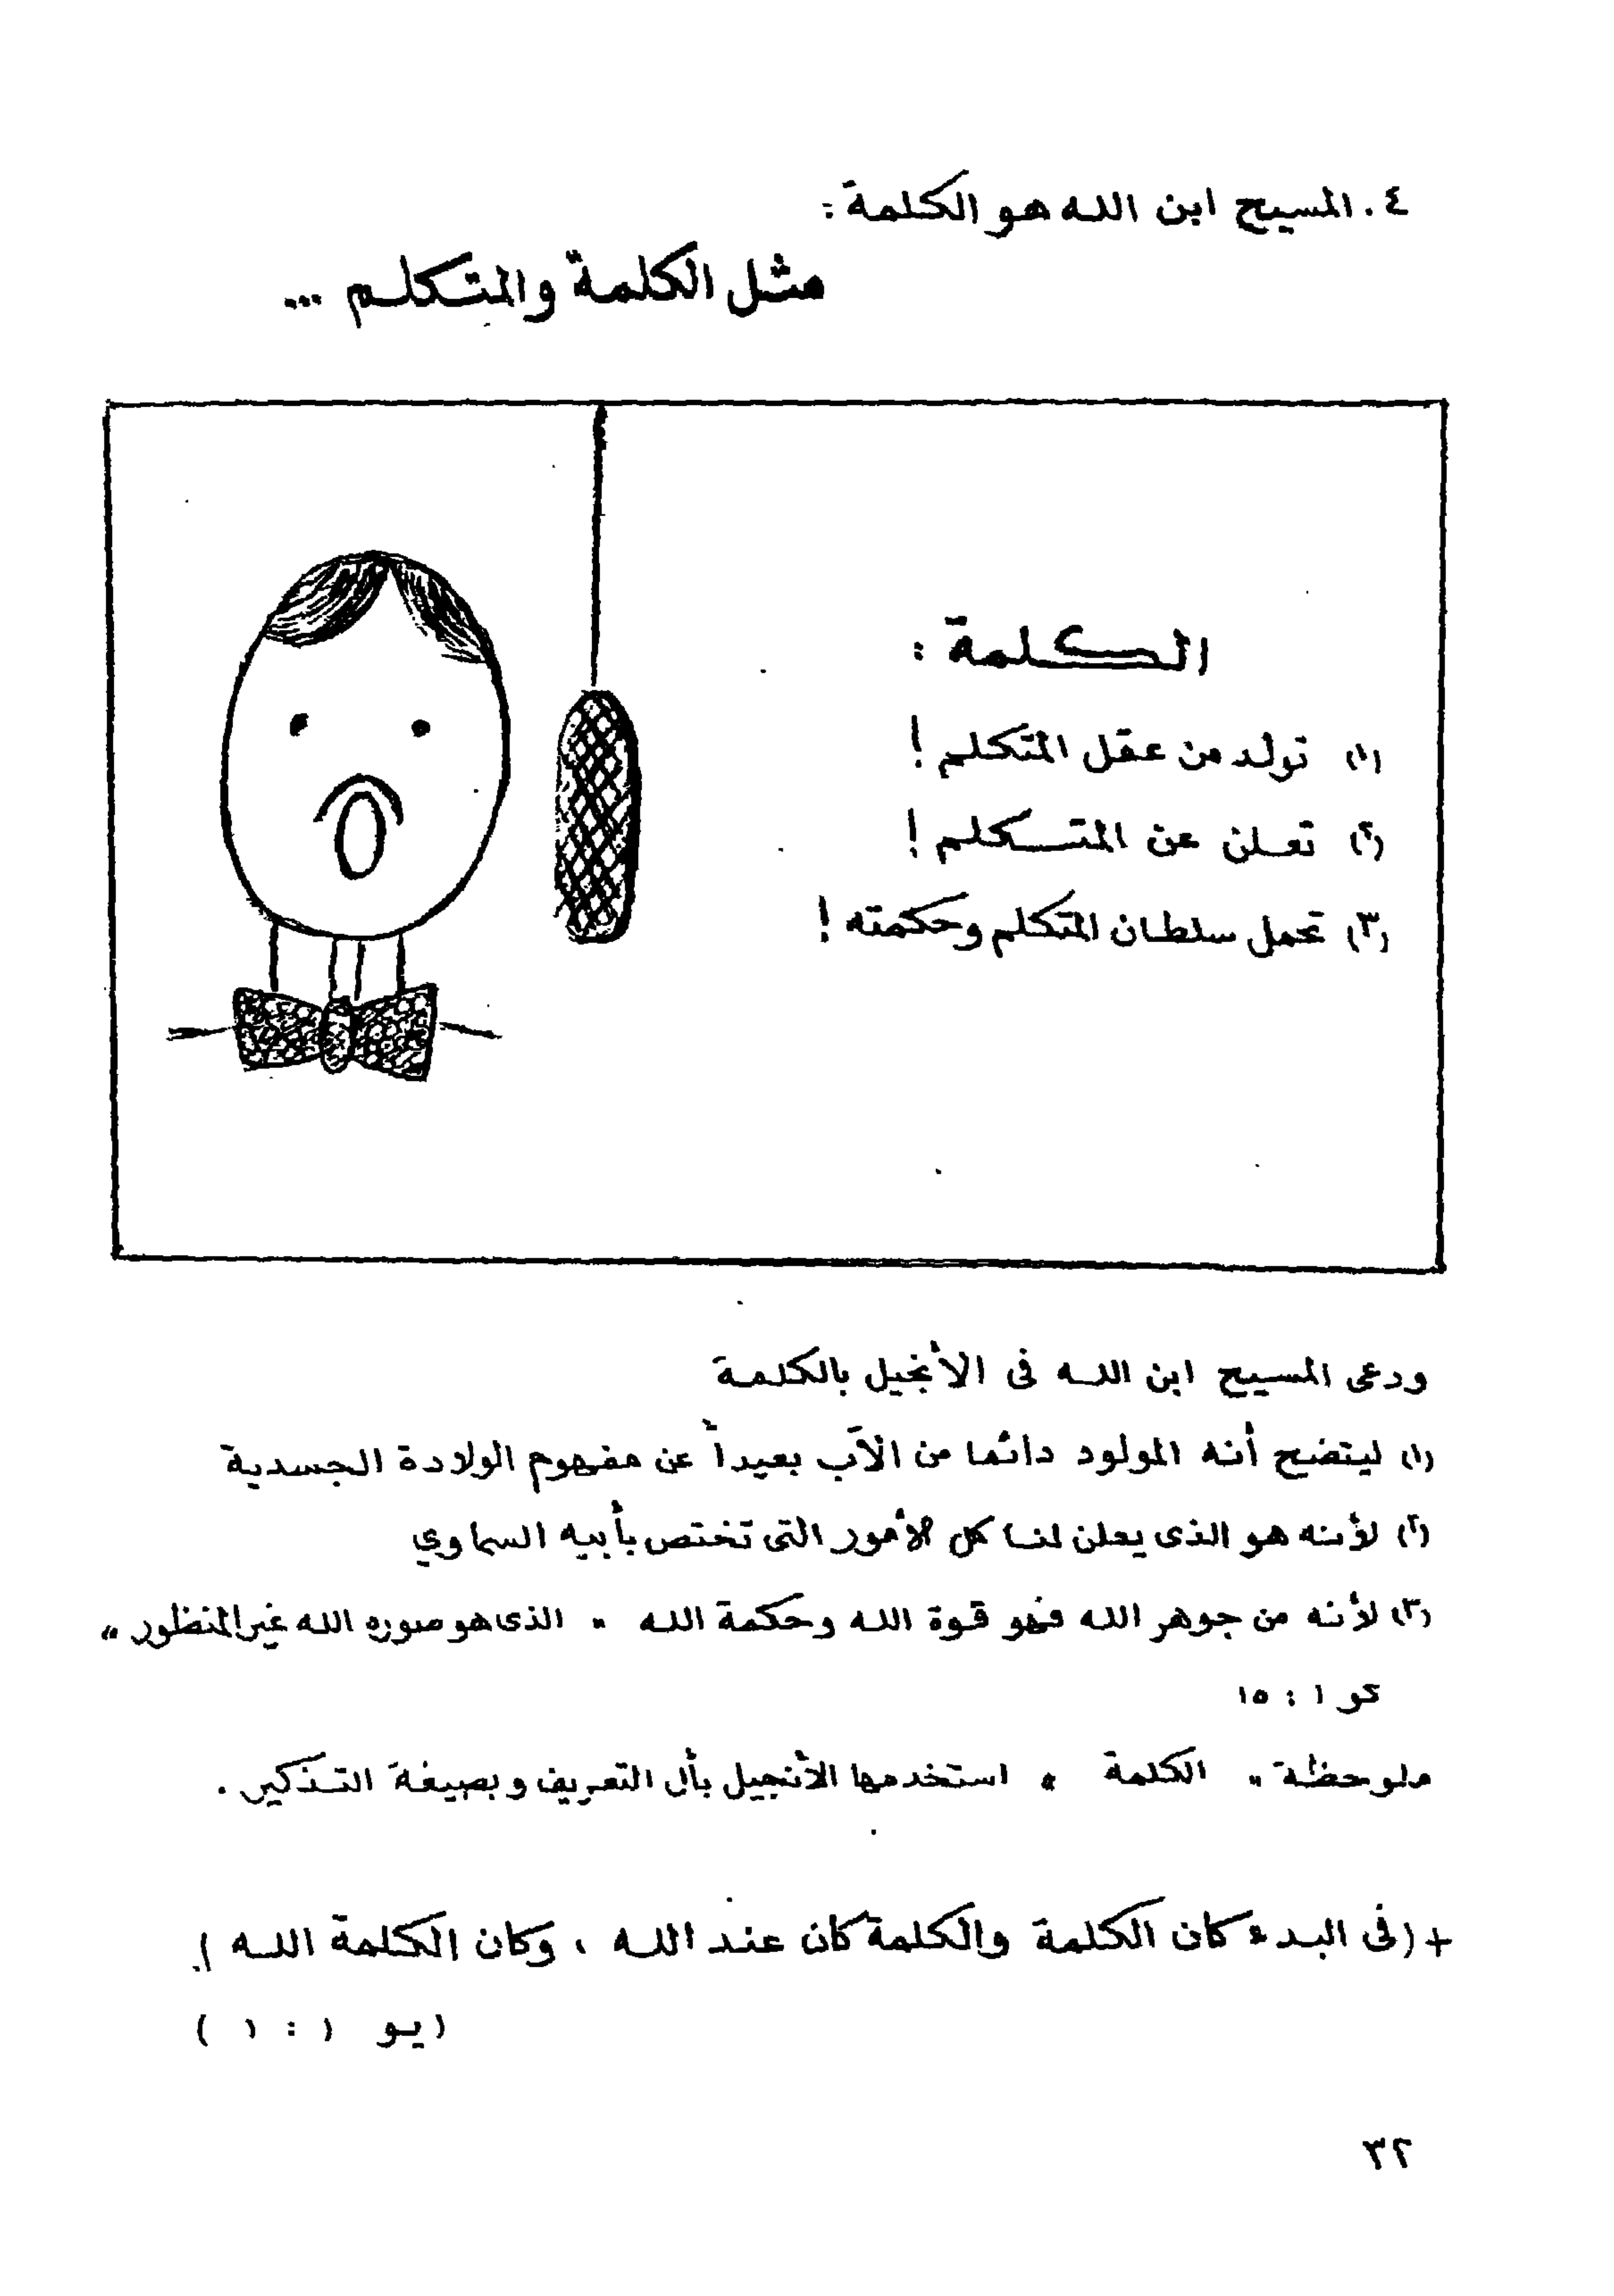 ٤. المسيح ابن الله هو الكلمة:
مثل الكلمة والمتكلم ...
الكلمة :
(١) تولد من عقل المتكلم !
(٢) تعلن عن المتكلم !
(٣) تحمل سلطان المتكلم وحكمته !
ودعى المسيح ابن الله فى الأنجيل بالكلمة
(١) ليتضح أنه المولود دائما من الآب بعيداً عن مفهوم الولادة الجسدية
(٢) لأنه هو الذى يعلن لنا كل الأمور التى تختص بأبيه السماوي
(٣) لأنه من جوهر الله فهو قوة الله وحكمة الله " الذى هو صوره الله غير المنظور "
كو ١ : ١٥
ملوحظة " الكلمة " استخدمها الأنجيل بأل التعريف وبصيغة التذكير .
+ (فى البدء كان الكلمة والكلمة كان عند الله ، وكان الكلمة الله ) .
(يو ١ : ١ )
٣٢